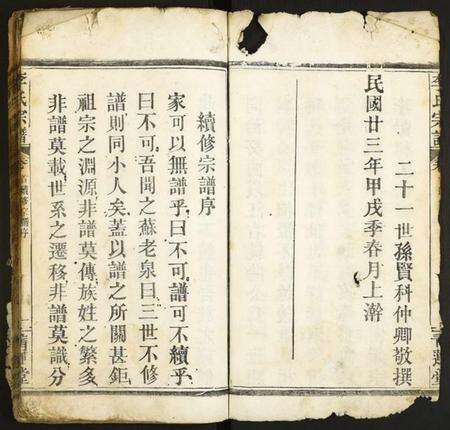 二十一世孫賢科仲卿敬撰
民國廿三年甲戌季春月上澣
續修宗譜序
家可以無譜乎曰不可譜可不續乎
曰不可吾聞之蘇老泉曰三世不修
譜則同小人矣蓋以譜之所關甚鉅
祖宗之淵源非譜莫傳族姓之繁多
非譜莫載世系之遷移非譜莫識分
李氏宗譜